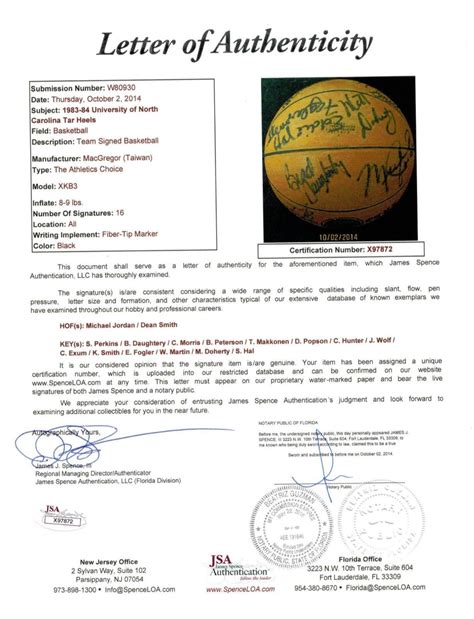 Letter of Authenticity
Submission Number: W80930
Date: Thursday, October 2, 2014
Subject: 1983-84 University of North
Carolina Tar Heels
Field: Basketball
Description: Team Signed Basketball
Manufacturer: MacGregor (Taiwan)
Type: The Athletics Choice
Model: XKB3
Inflate: 8-9 lbs.
Number Of Signatures: 16
Location: All
Writing Implement: Fiber-Tip Marker
Color: Black
10/02/2014
Certification Number: X97872
This document shall serve as a letter of authenticity for the aforementioned item, which James Spence
Authentication, LLC has thoroughly examined.
The signature(s) is/are consistent considering a wide range of specific qualities including slant, flow, pen
pressure, letter size and formation, and other characteristics typical of our extensive database of known exemplars we
have examined throughout our hobby and professional careers.
HOF(s): Michael Jordan / Dean Smith
KEY(s): S. Perkins / B. Daughtery / C. Morris / B. Peterson / T. Makkonen / D. Popson / C. Hunter / J. Wolf /
C. Exum / K. Smith / E. Fogler / W. Martin / M. Doherty / S. Hal
It is our considered opinion that the signature item is/are genuine. Your item has been assigned a unique
certification number, which is uploaded into our restricted database and can be confirmed on our website
www.SpenceLOA.com at any time. This letter must appear on our proprietary water-marked paper and bear the live
signatures of both James Spence and a notary public.
We appreciate your consideration of entrusting James Spence Authentication's judgment and look forward to
examining additional collectibles for you in the near future.
Autographically Yours,
James J. Spence, III
Regional Managing Director/Authenticator
James Spence Authentication, LLC (Florida Division)
NOTARY PUBLIC OF FLORIDA
Before me, the undersigned notary public, this day personally appeared JAMES J.
SPENCE, III 3223 N.W. 10th Terrace, Suite 604, Fort Lauderdale, FL 33309
who being duly sworn according to law, claimed this to be a true
Sworn and subscribed before me October 02, 2014.
Notary Public
BEATRIZ GUZMAN
NOTARY PUBLIC, STATE OF FLORIDA
NOTARY
JSA
X97872
New Jersey Office
2 Sylvan Way, Suite 102
Parsippany, NJ 07054
973-898-1300 • Info@SpenceLOA.com
JSA
James Spence
Authentication
follow the leader
www.SpenceLOA.com
Florida Office
3223 N.W. 10th Terrace, Suite 604
Fort Lauderdale, FL 33309
954-380-8670 • Florida@SpenceLOA.com